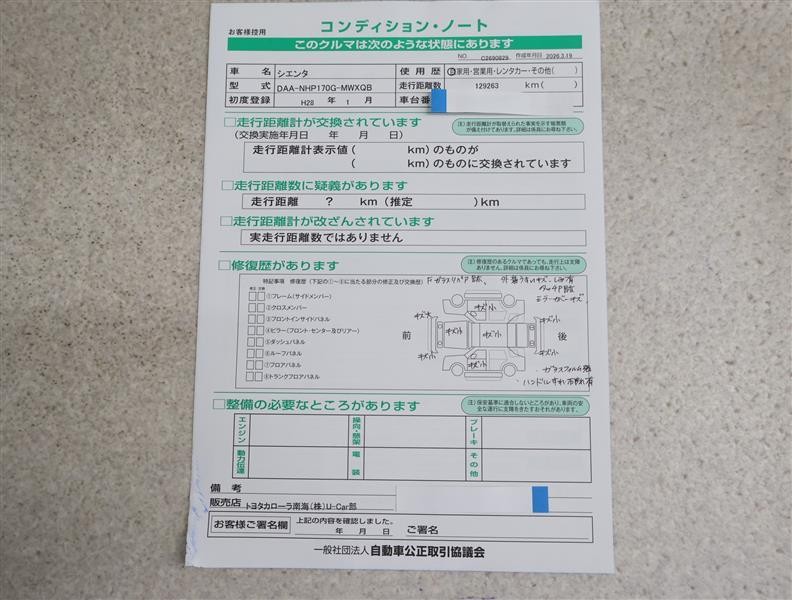 お客様控用
コンディション・ノート
このクルマは次のような状態にあります
NO. C2690829 作成年月日 2026.3.19
車名 シエンタ 使用歴 自家用・営業用・レンタカー・その他( )
型式 DAA-NHP170G-MWXQB 走行距離数 129263 km( )
初度登録 H28 年 1 月 車台番
□走行距離計が交換されています
(注)走行距離計が取替えられた事実を示す帳票類が備え付けてあります。詳細は係員にお尋ね下さい。
(交換実施年月日 年 月 日)
走行距離計表示値( km)のものが
( km)のものに交換されています
□走行距離数に疑義があります
走行距離 ? km(推定 )km
□走行距離計が改ざんされています
実走行距離数ではありません
□修復歴があります
(注)修復歴のあるクルマであっても、走行上は支障ありません。詳細は係員にお尋ね下さい。
特記事項 修復歴(下記の①~⑧に当たる部分の修正及び交換歴)
修正 交換
①フレーム(サイドメンバー)
②クロスメンバー
③フロントインサイドパネル
④ピラー(フロント・センター及びリアー)
⑤ダッシュパネル
⑥ルーフパネル
⑦フロアパネル
⑧トランクフロアパネル
Fガラスリペア跡、外装うすいキズ・しみ有
タッチP跡
ミラーカバーキズ
キズ小
キズ大
キズ小
キズ小
キズ小
前
後
キズ小
キズ小
キズ小
・ガラスフィルム
・ハンドルすれ
□整備の必要なところがあります
(注)保安基準に適合しないところがあり、車両の安全な運行に支障をきたすおそれがあります。
エンジン 操向・懸架 ブレーキ
動力伝達 電装 その他
備考
販売店 トヨタカローラ南海(株)U-Car部
お客様ご署名欄 上記の内容を確認しました。
年 月 日 ご署名
一般社団法人 自動車公正取引協議会